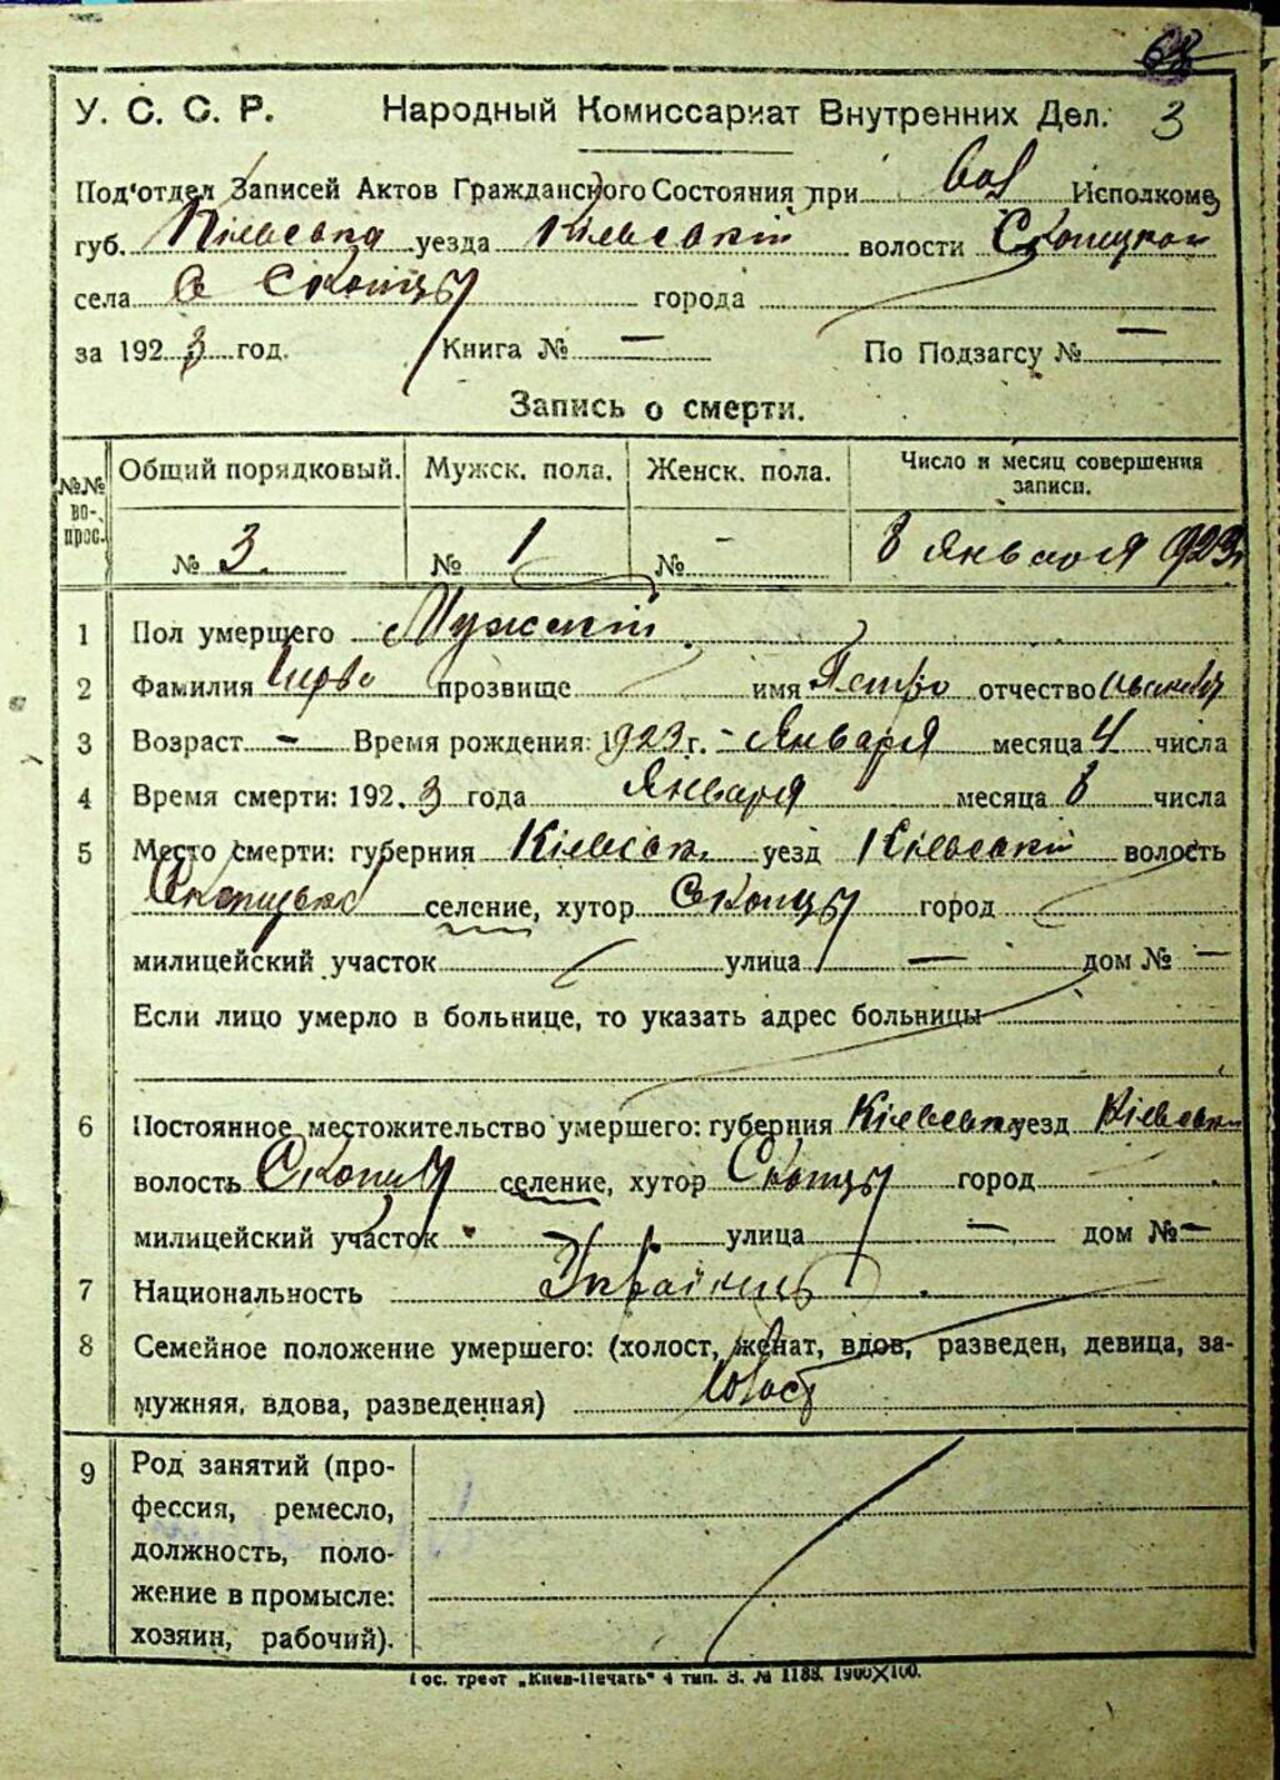 У. С. С. Р. Народный Комиссариат Внутренних Дел. 3
Под'отдел Записей Актов Гражданского Состояния при Вол Исполкоме
губ. Кіевська уезда Кіевский волости Скопецкой
села с Скопцы города
за 1923 год. Книга № — По Подзагсу № —
Запись о смерти.
№№ во-прос. Общий порядковый. Мужск. пола. Женск. пола. Число и месяц совершения записи.
№ 3. № 1 № - 8 Января 1923 г
1 Пол умершего Мужский
2 Фамилия прозвище имя Петро отчество
3 Возраст — Время рождения: 1923 г. - Января месяца 4 числа
4 Время смерти: 1923 года Января месяца 8 числа
5 Место смерти: губерния Кіевськ. уезд Кіевский волость
Скопцька селение, хутор Скопцы город
милицейский участок улица — дом № —
Если лицо умерло в больнице, то указать адрес больницы
6 Постоянное местожительство умершего: губерния Кіевська уезд Кіевськи
волость Скопцы селение, хутор Скопцы город
милицейский участок улица — дом № —
7 Национальность Українець
8 Семейное положение умершего: (холост, женат, вдов, разведен, девица, за-
мужняя, вдова, разведенная) холост
9 Род занятий (про-
фессия, ремесло,
должность, поло-
жение в промысле:
хозяин, рабочий).
Гос. трест „Киев-Печать" 4 тип. З. № 1188. 1900X100.